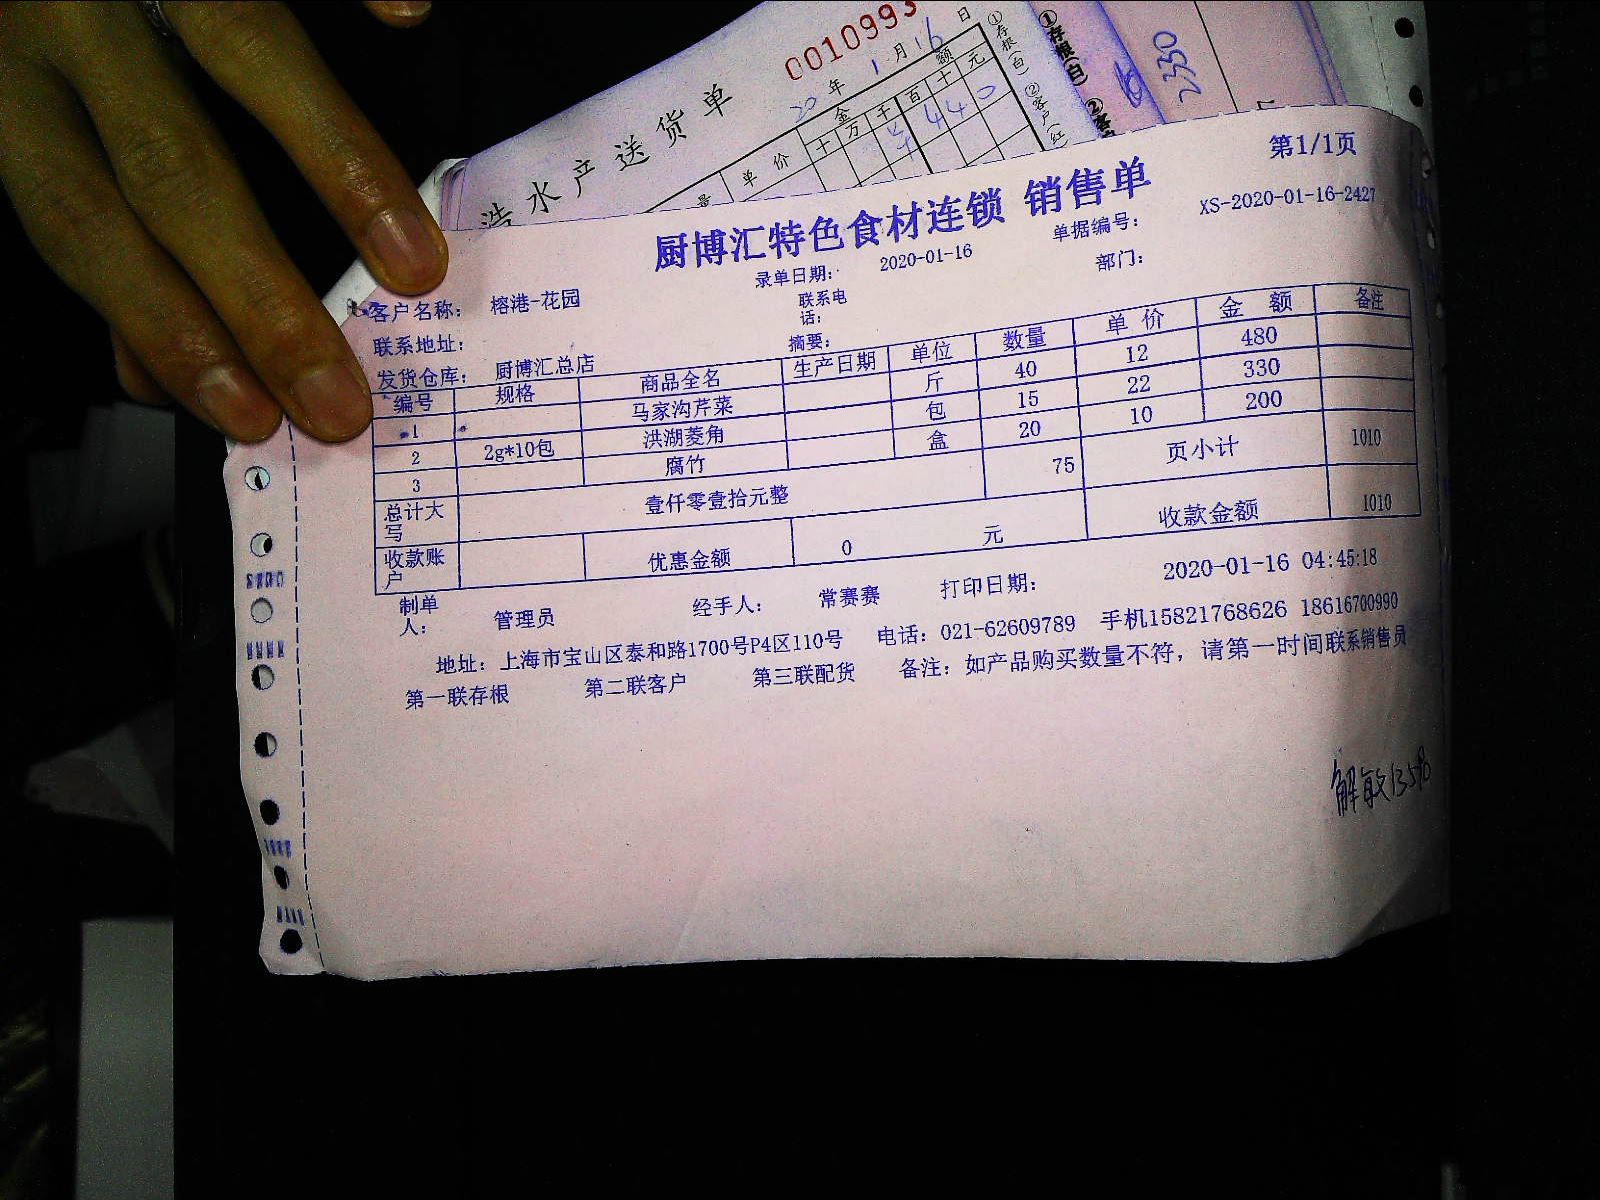 0010993
20年1月16日
浩水产送货单
金额
十万千百十元
单价
¥440
①存根(白)②客户(红
①存根(白)②客
2330
第1/1页
厨博汇特色食材连锁 销售单
录单日期: 2020-01-16 单据编号: XS-2020-01-16-2427
客户名称: 榕港-花园 联系电话: 部门:
联系地址: 摘要:
发货仓库: 厨博汇总店
编号 规格 商品全名 生产日期 单位 数量 单价 金额 备注
1 马家沟芹菜 斤 40 12 480
2 2g*10包 洪湖菱角 包 15 22 330
3 腐竹 盒 20 10 200
总计大写 壹仟零壹拾元整 75 页小计 1010
收款账户 优惠金额 0 元 收款金额 1010
制单人: 管理员 经手人: 常赛赛 打印日期: 2020-01-16 04:45:18
地址: 上海市宝山区泰和路1700号P4区110号 电话: 021-62609789 手机15821768626 18616700990
第一联存根 第二联客户 第三联配货 备注: 如产品购买数量不符, 请第一时间联系销售员